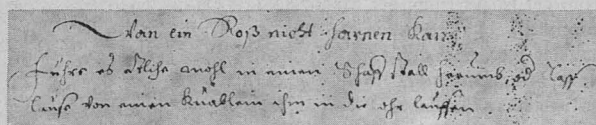 Wan ein Roß nicht harnen kan
führe es etliche mahl in einen Schaff stall herumb, od lass
lause von einen Knäblein ihm in die ohr lauffen